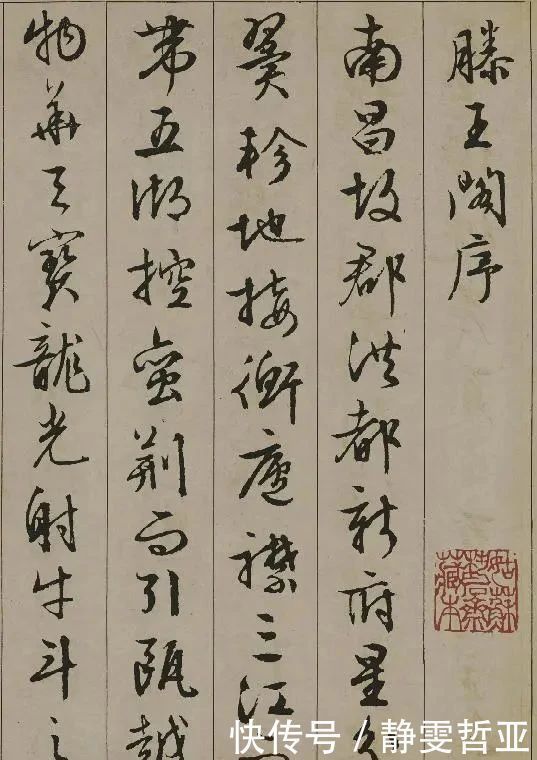 滕王閣序
南昌故郡洪都新府星分
翼軫地接衡廬襟三江
帶五湖控蛮荊而引甌越
物華天寶龍光射牛斗之
快传号 / 静雯哲亚